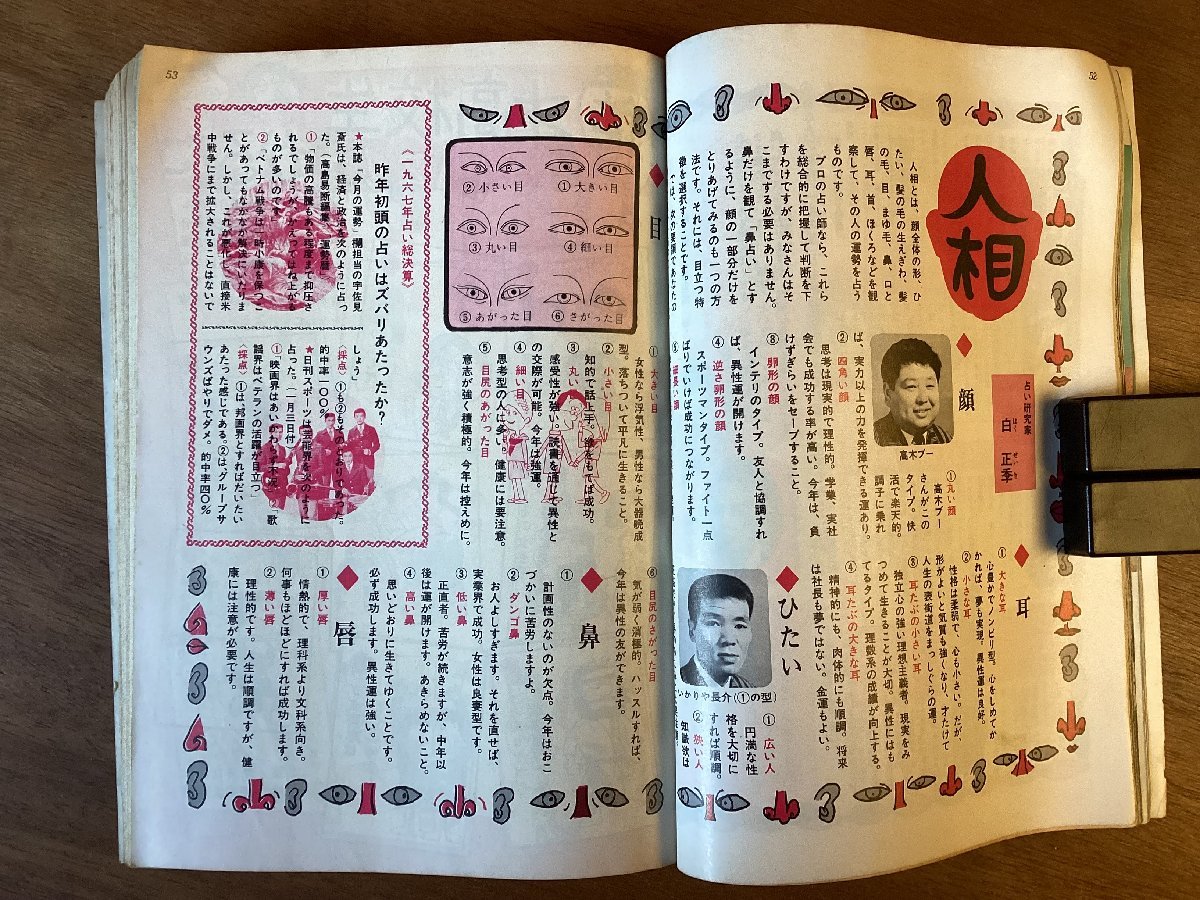 52
人相
占い研究家
白 正季
はく せいき
人相とは、顔全体の形、ひ
たい、髪の毛の生えぎわ、髪
の毛、目、まゆ毛、鼻、口と
唇、耳、首、ほくろなどを観
察して、その人の運勢を占う
ものです。
プロの占い師なら、これら
を総合的に把握して判断を下
すわけですが、みなさんはそ
こまでする必要はありません。
鼻だけを観て「鼻占い」とす
るように、顔の一部分だけを
とりあげてみるのも一つの方
法です。それには、目立つ特
徴を選択することです。
◆顔
高木ブー
①丸い顔
高木ブー
さんがこの
タイプ。快
活で楽天的。
調子に乗れ
ば、実力以上の力を発揮できる運あり。
②四角い顔
思考は現実的で理性的。学業、実社
会でも成功する率が高い。今年は、負
けずぎらいをセーブすること。
③卵形の顔
インテリのタイプ。友人と協調すれ
ば、異性運が開けます。
④逆さ卵形の顔
スポーツマンタイプ。ファイト一点
ばりでいけば成功につながります。
◆耳
①大きな耳
心豊かでノンビリ型。心をしめてか
かれば、夢も実現。異性運は良好。
②小さな耳
性格は柔弱で、心も小さい。だが、
形がよいと気質も強くなり、才たけて
人生の表街道をまっしぐらの運。
③耳たぶの小さい耳
独立心の強い理想主義者。現実をみ
つめて生きることが大切。異性にはも
てるタイプ。理数系の成績が向上する。
④耳たぶの大きな耳
精神的にも、肉体的にも順調。将来
は社長も夢ではない。金運もよい。
◆ひたい
いかりや長介(①の型)
①広い人
円満な性
格を大切に
すれば順調。
②狭い人
知識欲は
53
◆目
①大きい目
②小さい目
③丸い目
④細い目
⑤あがった目
⑥さがった目
①大きい目
女性なら浮気性、男性なら大器晩成
型。落ちついて平凡に生きること。
②小さい目
知的で話上手。誰をもてば成功。
③丸い目
感受性が強い。読書を通じて異性と
の交際が可能。今年は強運。
④細い目
思考型の人は多い。健康には要注意。
⑤目尻のあがった目
意志が強く積極的。今年は控えめに。
⑥目尻のさがった目
気が弱く消極的。ハッスルすれば、
今年は異性の友ができます。
◆鼻
①
計画性のないのが欠点。今年はおこ
づかいに苦労しますよ。
②ダンゴ鼻
お人よしすぎます。それを直せば、
実業界で成功。女性は良妻型です。
③低い鼻
正直者。苦労が続きますが、中年以
後は運が開けます。あきらめないこと。
④高い鼻
思いどおりに生きてゆくことです。
必ず成功します。異性運は強い。
◆唇
①厚い唇
情熱的で、理科系より文科系向き。
何事もほどほどにすれば成功します。
②薄い唇
理性的です。人生は順調ですが、健
康には注意が必要です。
《一九六七年占い総決算》
昨年初頭の占いはズバリあたったか?
★本誌「今月の運勢」欄担当の宇佐見
斎氏は、経済と政治を次のように占っ
た。(高島易断編纂・運勢暦)
①「物価の高騰もある程度まで抑圧さ
れるでしょうが、かえってはね上がる
ものが多いのです」
②「ベトナム戦争は一時小康を保つこ
とがあってもなかなか解決にいたりま
せん。しかし、これが悪化し、直接米
中戦争にまで拡大されることはないで
しょう」
〈採点〉①も②もそのとおりであった。
的中率一〇〇%
★日刊スポーツは芸能界を次のように
占った。(一月三日付)
①「映画界はあいかわらず不況」②「歌
謡界はベテランの活躍が目立つ」
〈採点〉①は、邦画界とすればだいたい
あたった感じである。②は、グループサ
ウンズばやりでダメ。的中率四〇%